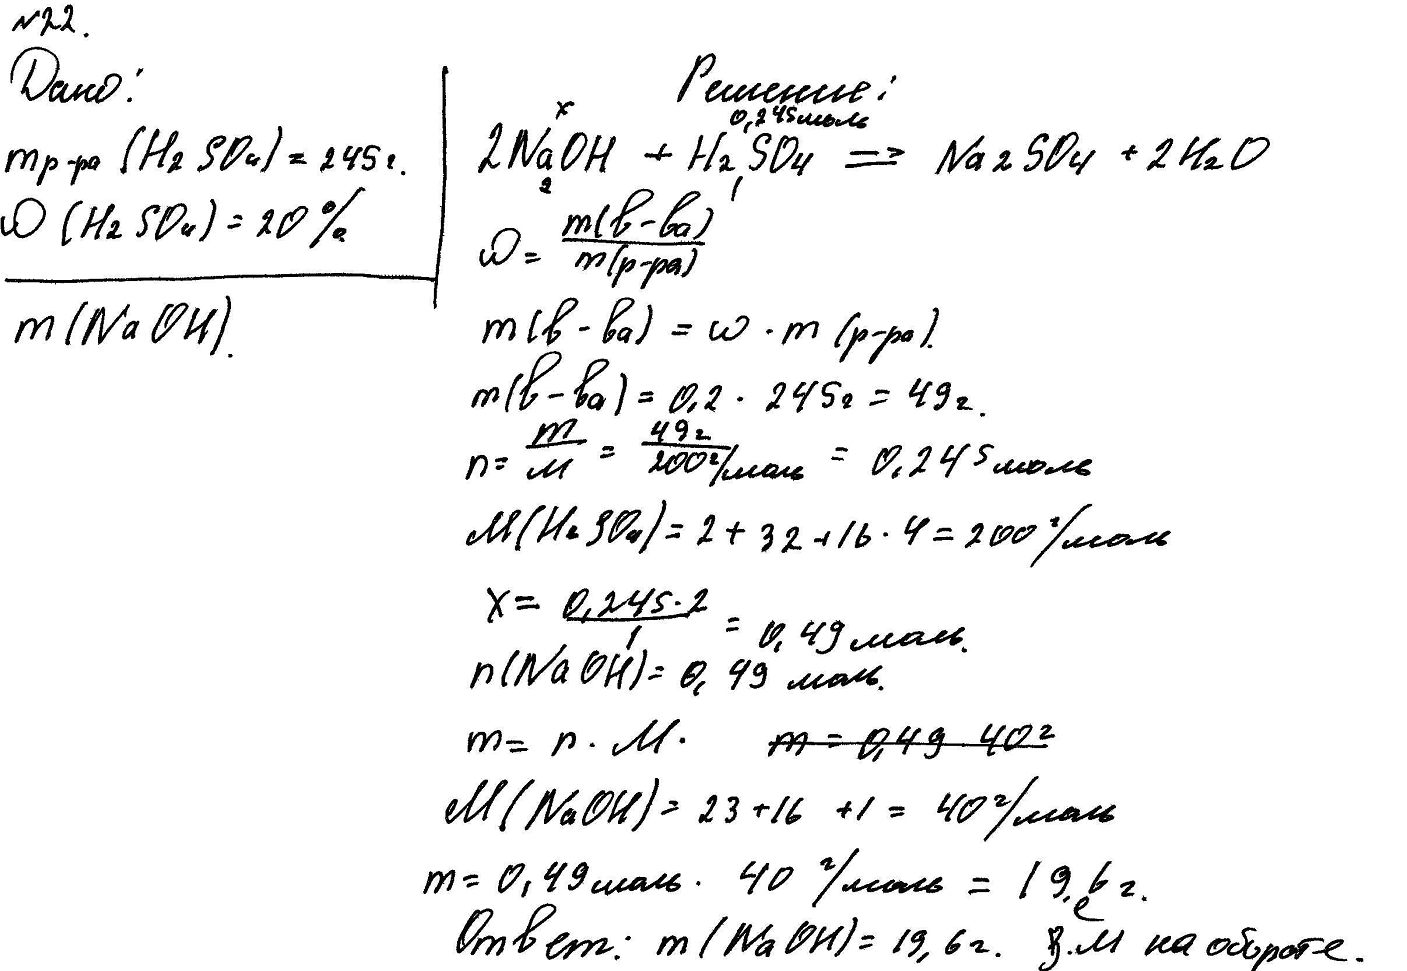 №22.
Дано:
mр-ра (H2SO4) = 245г.
ω (H2SO4) = 20%
m(NaOH).
Решение:
x 0,245моль
2NaOH + H2SO4 => Na2SO4 + 2H2O
2 1
ω = m(в-ва) / m(р-ра)
m(в-ва) = ω · m (р-ра).
m(в-ва) = 0,2 · 245г = 49г.
n = m/M = 49г / 200г/моль = 0,245 моль
M(H2SO4) = 2 + 32 + 16 · 4 = 200 г/моль
x = 0,245·2 / 1 = 0,49 моль.
n(NaOH) = 0,49 моль.
m = n · M. m = 0,49 40г
M(NaOH) = 23 + 16 + 1 = 40 г/моль
m = 0,49 моль · 40 г/моль = 19,6 г.
Ответ: m(NaOH) = 19,6 г. на обороте.